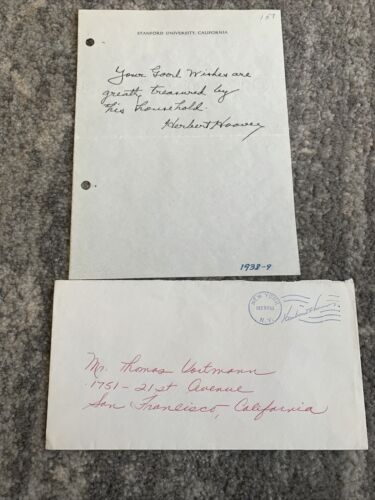 157
STANFORD UNIVERSITY, CALIFORNIA
Your Good Wishes are
greatly treasured by
this household.
Herbert Hoover
1938-9
NEW YORK
N.Y.
Mr. Thomas Vortmann
1751-21st Avenue
San Francisco, California